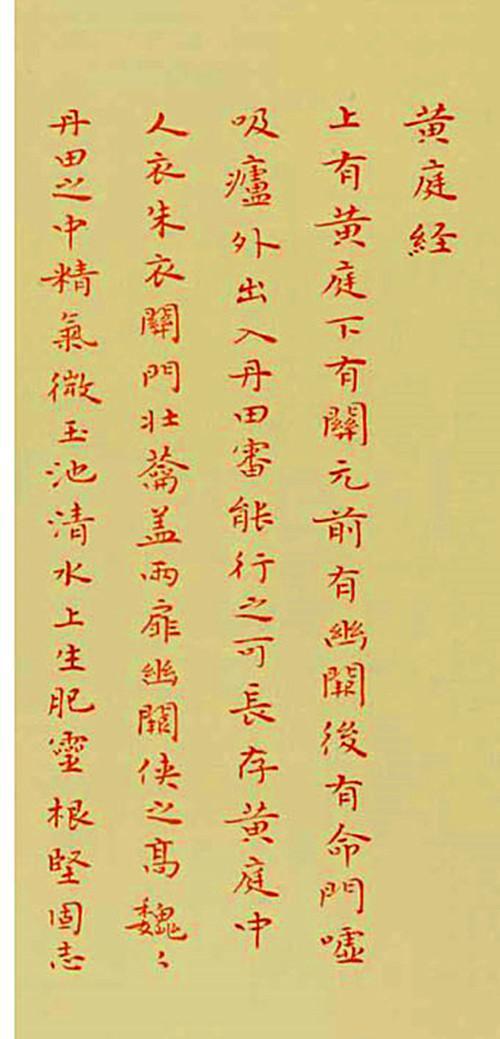 黄庭経
上有黄庭下有關元前有幽闕後有命門噓
吸廬外出入丹田審能行之可長存黄庭中
人衣朱衣關門壯蘥盖兩扉幽闕俠之髙魏〻
丹田之中精氣微玉池清水上生肥靈根堅固志